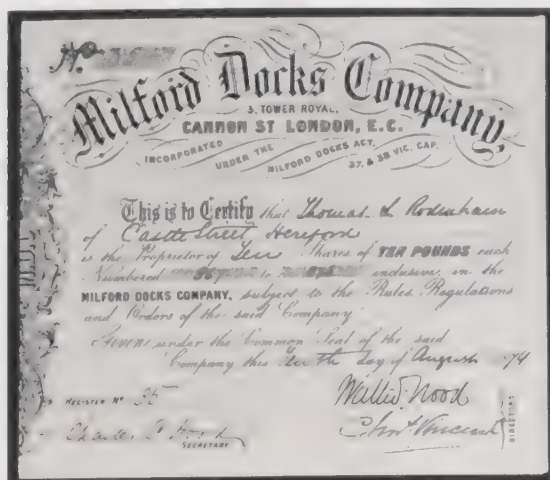 No
Milford Docks Company,
3, TOWER ROYAL,
CANNON ST LONDON, E.C.
INCORPORATED UNDER THE MILFORD DOCKS ACT, 37. & 38 VIC. CAP.
This is to Certify that Thomas L Rodenham
of Castle Street Hereford
is the Proprietor of Ten Shares of TEN POUNDS each
Numbered to inclusive, in the
MILFORD DOCKS COMPANY, subject to the Rules, Regulations
and Orders of the said Company
Given under the Common Seal of the said
Company this day of August 74
REGISTER No 35
SECRETARY
DIRECTORS